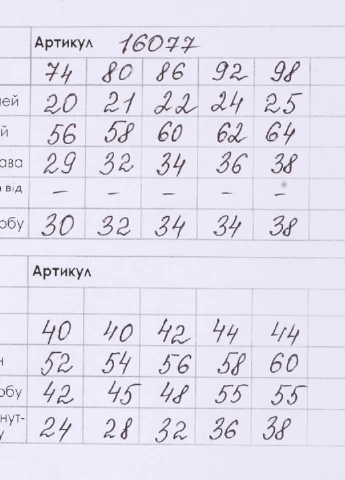 Артикул 16077
74 80 86 92 98
лей 20 21 22 24 25
й 56 58 60 62 64
ава 29 32 34 36 38
від - - - - -
обу 30 32 34 34 38
Артикул
40 40 42 44 44
н 52 54 56 58 60
обу 42 45 48 55 55
нут- 24 28 32 36 38
у